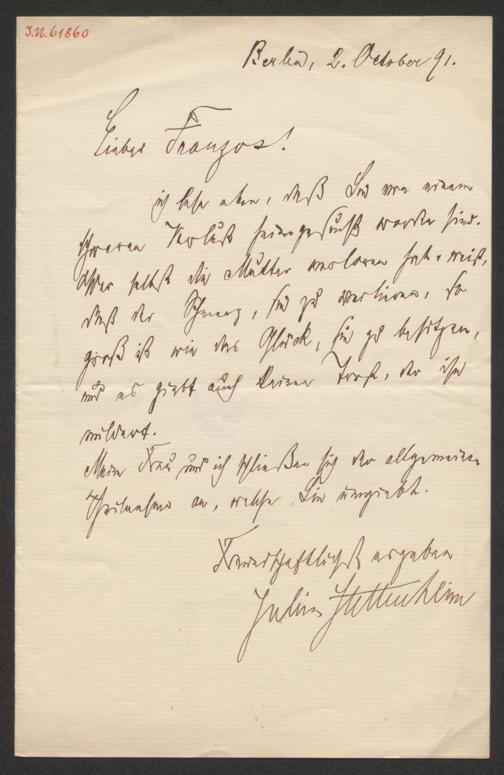 J.N. 61860
Berlin, 2. October 91.
Lieber Franzos!
ich lese eben, daß Sie von einem
schweren Verlust heimgesucht worden sind.
Wer selbst die Mutter verloren hat, weiß,
daß der Schmerz, sie zu verlieren, so
groß ist wie das Glück, sie zu besitzen,
und es giebt auch keinen Trost, der ihn
mildert.
Meine Frau und ich schließen sich der allgemeinen
Theilnahme an, welche Sie umgiebt.
Freundschaftlichst ergeben
Julius Stettenheim